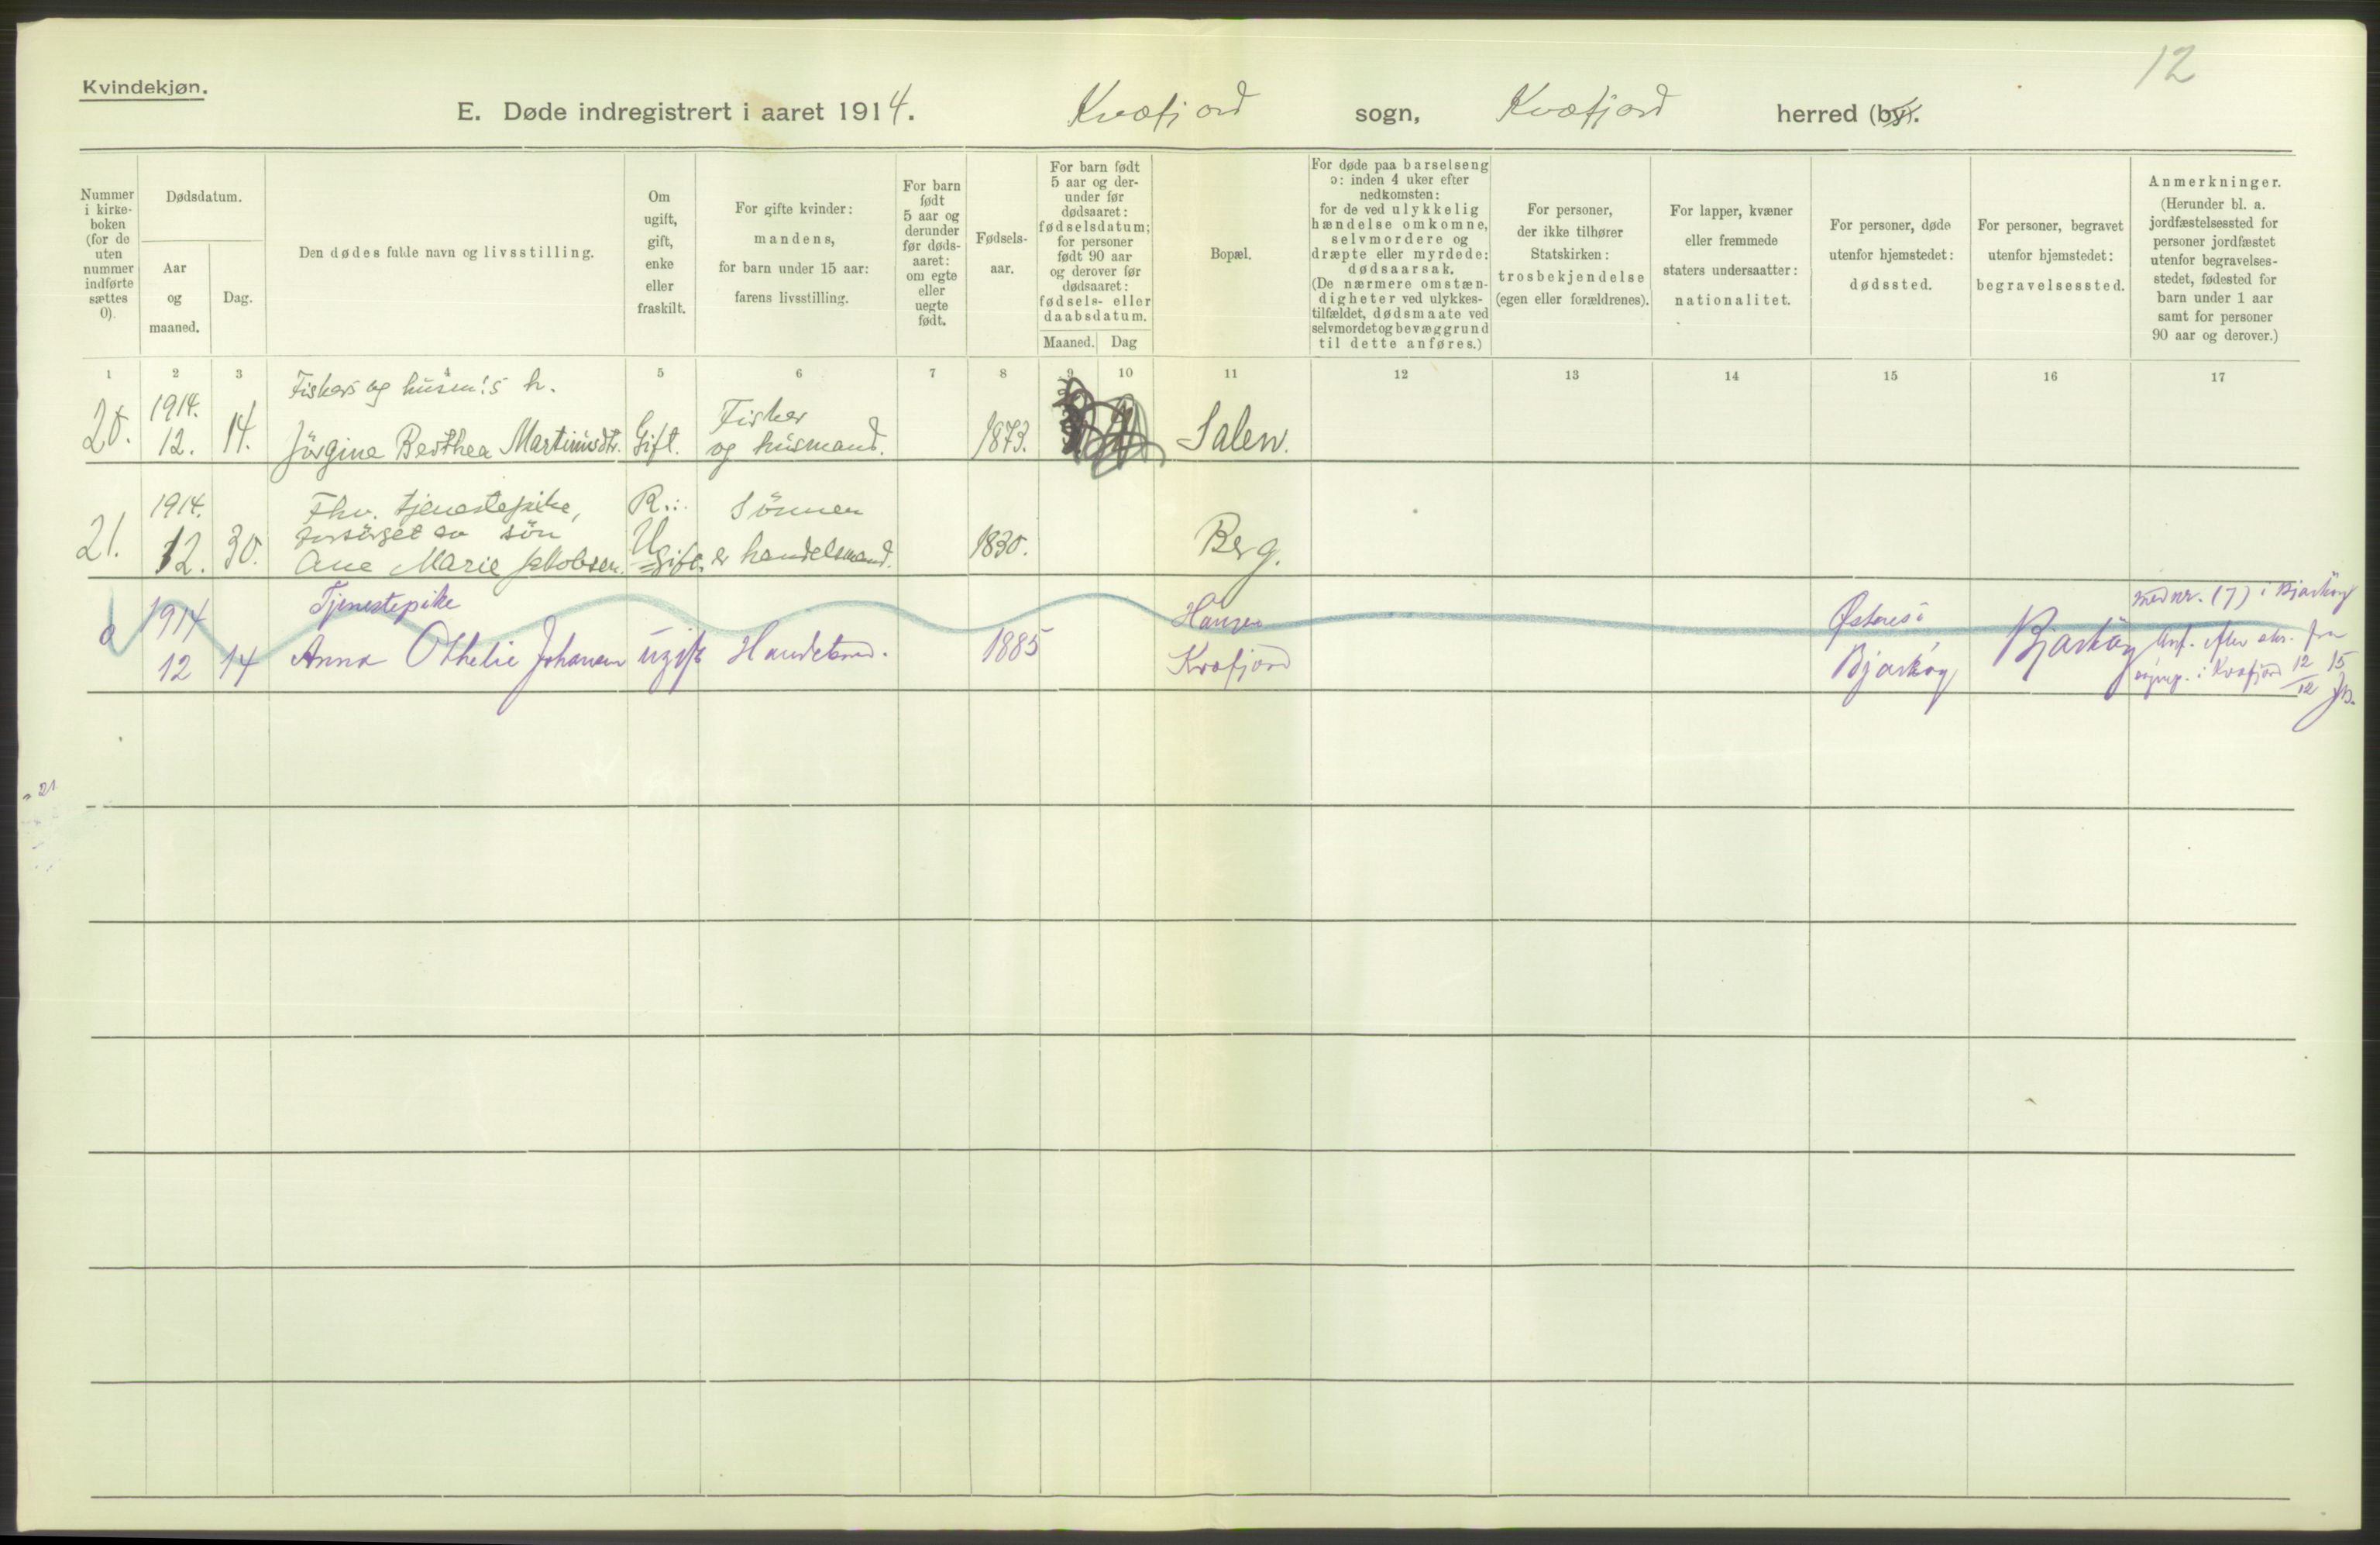 12
Kvindekjøn.
E. Døde indregistrert i aaret 1914. Kvæfjord sogn, Kvæfjord herred (by).
Nummer i kirke-boken (for de uten nummer indførte sættes 0).
Dødsdatum.
Aar og maaned.
Dag.
Den dødes fulde navn og livsstilling.
Om ugift, gift, enke eller fraskilt.
For gifte kvinder: mandens, for barn under 15 aar: farens livsstilling.
For barn født 5 aar og derunder før døds-aaret: om egte eller uegte født.
Fødsels-aar.
For barn født 5 aar og der-under før dødsaaret: fødselsdatum; for personer født 90 aar og derover før dødsaaret: fødsels- eller daabsdatum.
Maaned. Dag
Bopæl.
For døde paa barselseng ɔ: inden 4 uker efter nedkomsten: for de ved ulykkelig hændelse omkomne, selvmordere og dræpte eller myrdede: dødsaarsak. (De nærmere omstæn-digheter ved ulykkes-tilfældet, dødsmaate ved selvmordet og bevæggrund til dette anføres.)
For personer, der ikke tilhører Statskirken: trosbekjendelse (egen eller forældrenes).
For lapper, kvæner eller fremmede staters undersaatter: nationalitet.
For personer, døde utenfor hjemstedet: dødssted.
For personer, begravet utenfor hjemstedet: begravelsessted.
Anmerkninger. (Herunder bl. a. jordfæstelsessted for personer jordfæstet utenfor begravelses-stedet, fødested for barn under 1 aar samt for personer 90 aar og derover.)
1 2 3 4 5 6 7 8 9 10 11 12 13 14 15 16 17
Fiskers og husm.'s h.
20. 1914. 12. 14. Jørgine Berthea Martinusdtr. Gift. Fisker og husmand. 1873. Salen.
Fhv. tjenestepike,
forsörget av sön
21. 1914. 12. 30. Ane Marie Jakobsen. R.: Ugift. Sönnen er handelsmand. 1830. Berg.
Tjenestepike
0 1914 12 14 Anna Othelie Johansen ugift Handelsmd. 1885 Hansen Kvæfjord
Bjarköy
Bjarköy
med nr. (7) i Bjarköy
efter skr. fra
i Kvæfjord 12/12 15
21